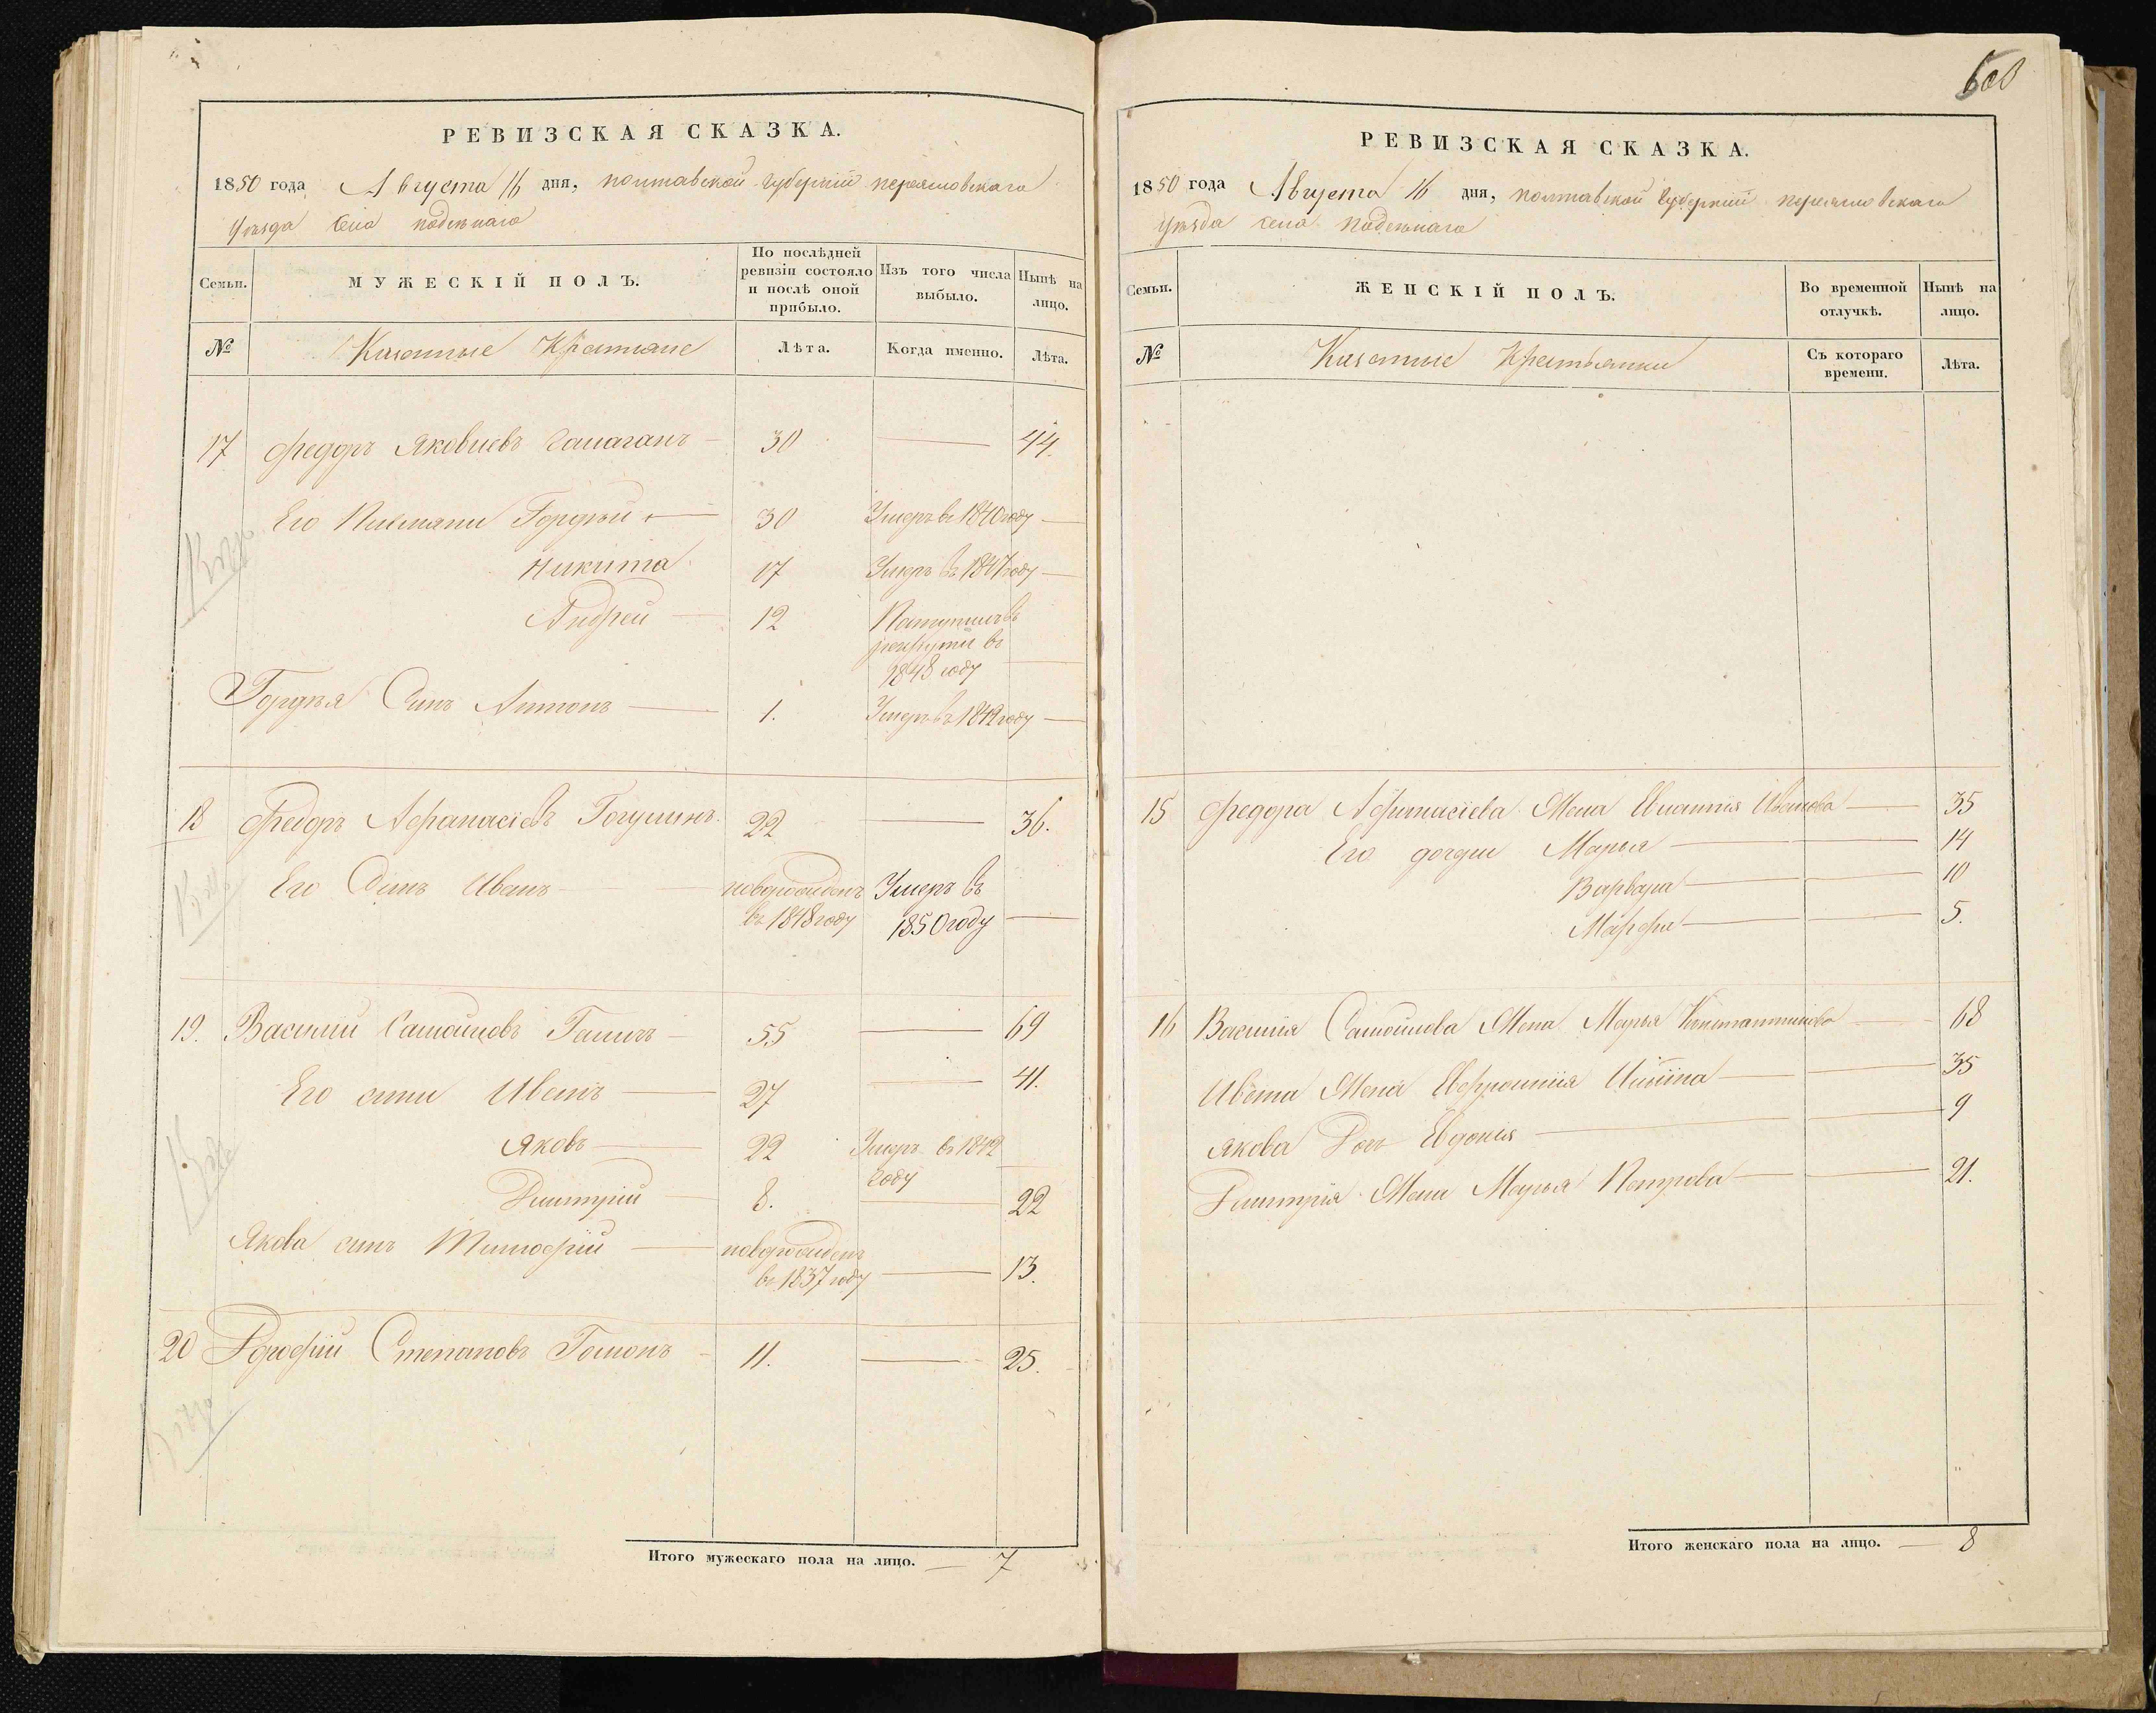 600
РЕВИЗСКАЯ СКАЗКА.
1850 года Августа 16 дня, полтавской губернии переясловскаго
уѣзда села
Семьи.
МУЖЕСКІЙ ПОЛЪ.
По послѣдней ревизіи состояло и послѣ оной прибыло.
Изъ того числа выбыло.
Нынѣ на лицо.
№
Казенные Крестьяне
Лѣта.
Когда именно.
Лѣта.
17 Федоръ Яковлевъ Галаганъ — 30 — 44.
Его Племяни Гордѣй — 30 Умеръ въ 1840 году —
Никита 17 Умеръ въ 1847 году —
Андрей — 12
рекруты въ
1848 году —
Гордѣя Сынъ Антонъ — 1. Умеръ въ 1842 году —
18 Федоръ Афанасіевъ 22 — 36.
Его Сынъ Иванъ — новорожденъ Умеръ въ
въ 1848 году 1850 году —
19. Василий Самойловъ — 55 — 69
Его сыни Иванъ — 27 — 41.
Яковъ — 22 Умеръ въ 1842
году —
Дмитрій — 8. — 22
Якова сынъ Тимофій — новорожденъ
въ 1837 году — 13.
20 Дорофій Степановъ Гомонъ — 11. — 25.
Итого мужескаго пола на лицо. — 7
РЕВИЗСКАЯ СКАЗКА.
1850 года Августа 16 дня, полтавской губерний переясловскаго
уѣзда села
Семьи.
ЖЕНСКІЙ ПОЛЪ.
Во временной отлучкѣ.
Нынѣ на лицо.
№
Казенные Крестьянки
Съ котораго времени.
Лѣта.
15 Федора Афанасіева Жена Иванова — 35
Его дочери Марья — — 14
Варвара — — 10
Марфа — — 5.
16 Василія Самойлова Жена Марья Константинова — 68
Ивана Жена Ефросинія — — 35
Якова Доч Евдокія — — 9
Дмитрія Жена Марья Петрова — — 21.
Итого женскаго пола на лицо. — 8